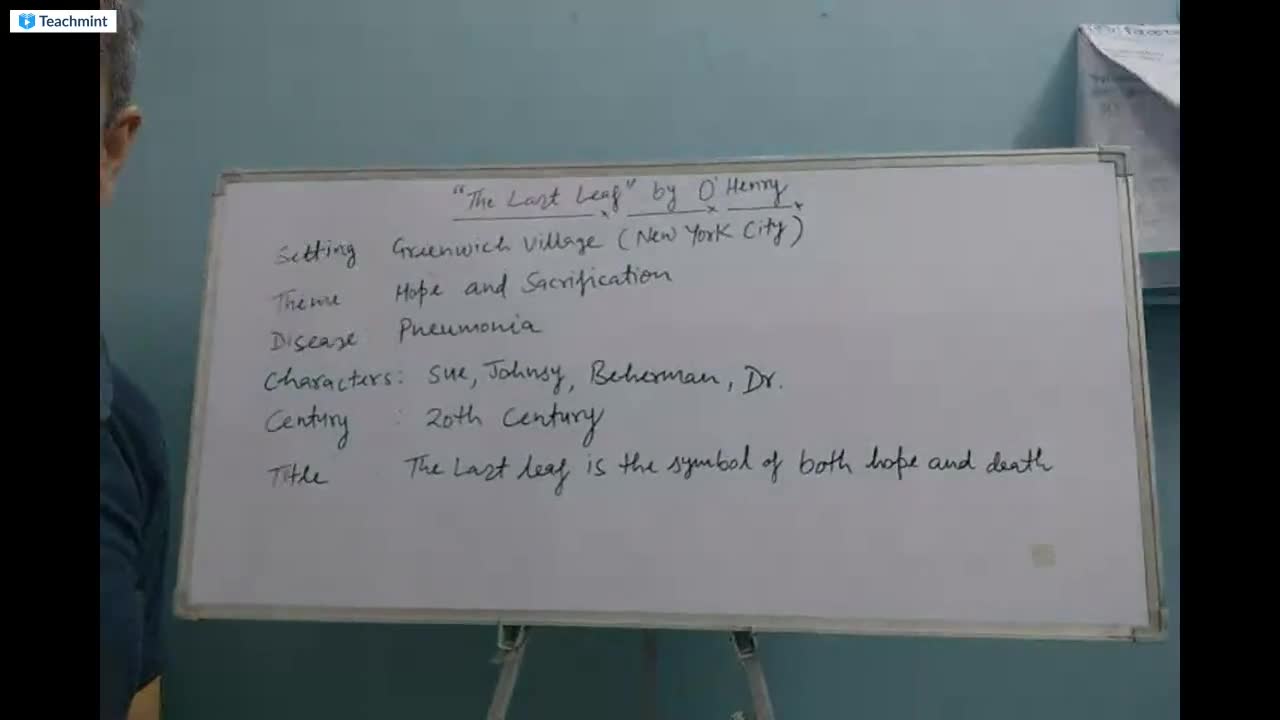 Teachmint
"The Last Leaf" by O'Henry
Setting Greenwich Village (New York City)
Theme Hope and Sacrification
Disease: Pneumonia
Characters: Sue, Johnsy, Beherman, Dr.
Century : 20th Century
Title The Last leaf is the symbol of both hope and death